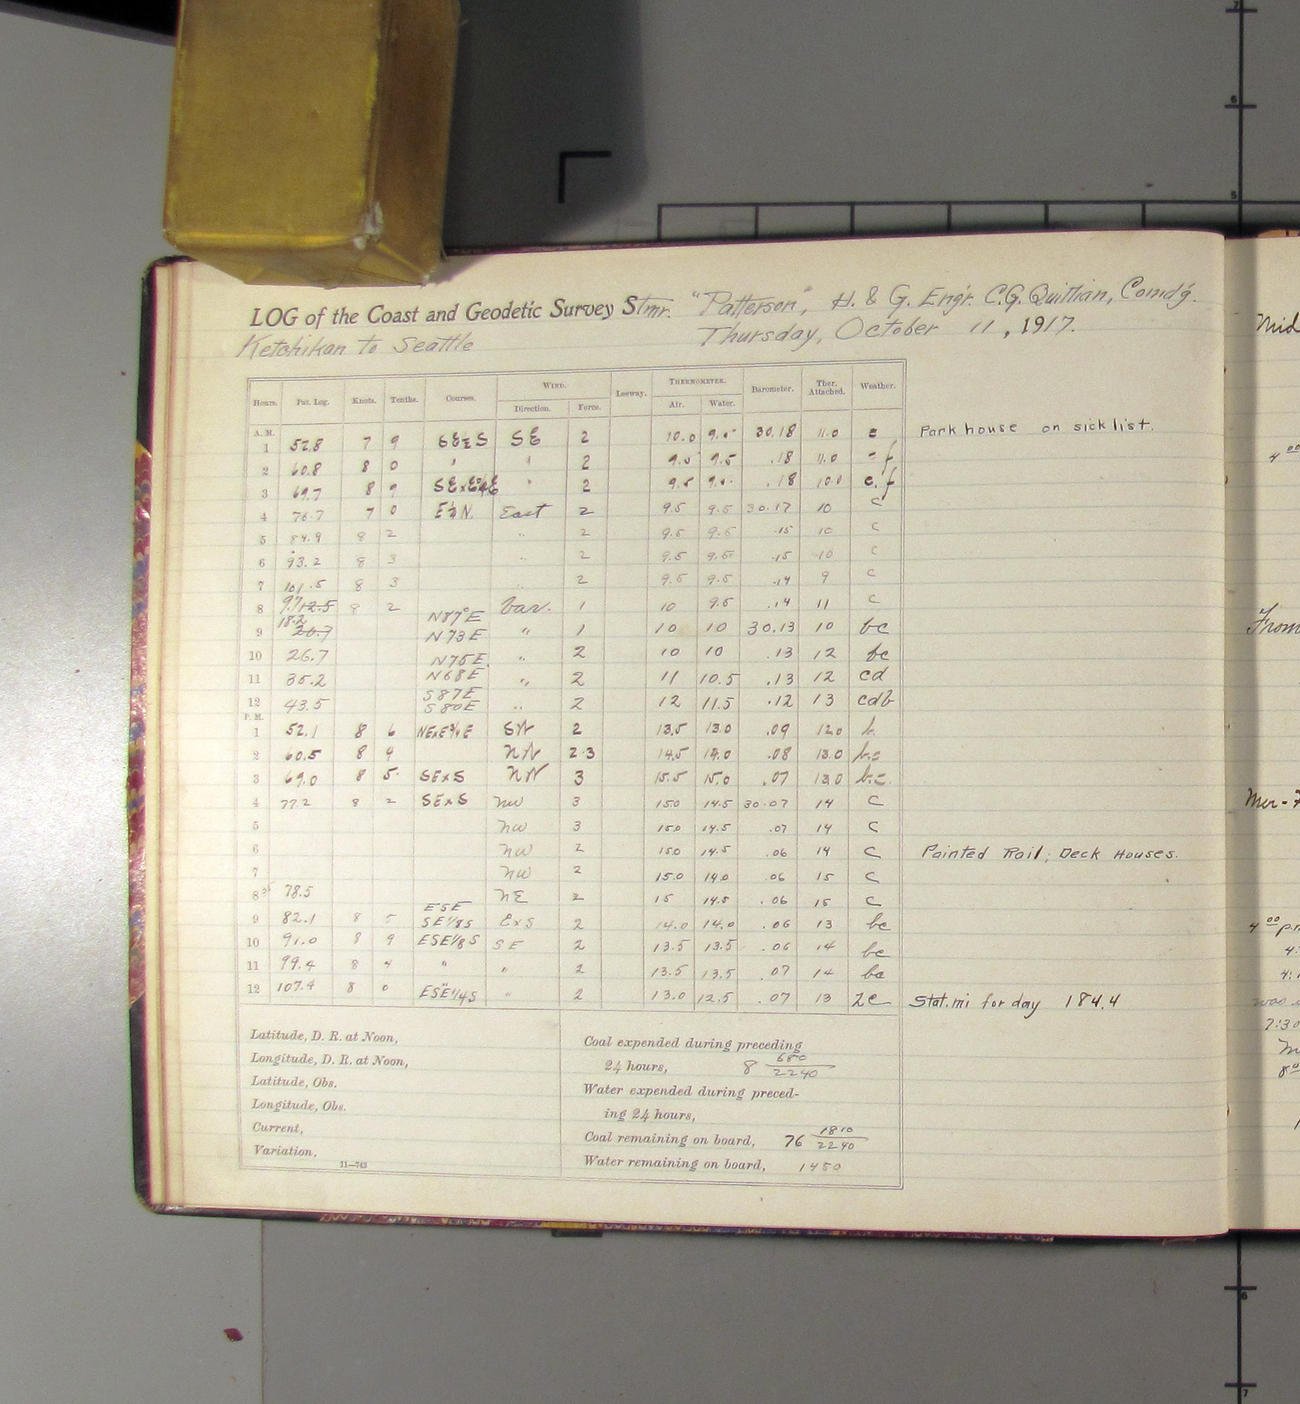 LOG of the Coast and Geodetic Survey Stmr. "Patterson", H. & G. Engr. C.G. Quillian, Comd'g.
Ketchikan to Seattle Thursday, October 11, 1917.
Hours. Pat. Log. Knots. Tenths. Courses. WIND. Direction. Force. Leeway. THERMOMETER. Air. Water. Barometer. Ther. Attached. Weather.
A. M.
1 52.8 7 9 SE 2 10.0 30.18 11.0 c Parkhouse on sick list.
2 60.8 8 0 " " 2 9.5 .18 11.0
3 69.7 8 9 " 2 .18 10.0 c.f
4 76.7 7 0 East 2 9.5 9.5 30.17 10 c
5 84.9 8 2 " 2 9.5 9.5 .15 10 c
6 93.2 8 3 " 2 9.5 9.5 .15 10 c
7 101.5 8 3 " 2 9.5 9.5 .14 9 c
8 8 2 N87°E Var. 1 10 9.5 .14 11 c
9 18.2 N73E " 1 10 10 30.13 10 bc
10 26.7 N75E " 2 10 10 .13 12 bc
11 35.2 N68E " 2 11 10.5 .13 12 cd
12 43.5 S87E S80E " 2 12 11.5 .12 13 cdb
P. M.
1 52.1 8 6 NExE¾E SW 2 13.5 13.0 .09 12.0 b.
2 60.5 8 4 NW 2-3 14.5 14.0 .08 13.0 b.c
3 69.0 8 5 SExS NW 3 15.5 15.0 .07 13.0 b.c.
4 77.2 8 2 SExS NW 3 15.0 14.5 30.07 14 c
5 NW 3 15.0 14.5 .07 14 c
6 NW 2 15.0 14.5 .06 14 c Painted Rail; Deck Houses.
7 NW 2 15.0 14.0 .06 15 c
8 78.5 NE 2 15 14.5 .06 15 c
ESE
9 82.1 8 5 SE1/8S ExS 2 14.0 14.0 .06 13 bc
10 91.0 8 9 ESE1/8S SE 2 13.5 13.5 .06 14 bc
11 99.4 8 4 " " 2 13.5 13.5 .07 14 bc
12 107.4 8 0 ESE1/4S " 2 13.0 12.5 .07 13 Stat. mi for day 184.4
Latitude, D. R. at Noon,
Longitude, D. R. at Noon,
Latitude, Obs.
Longitude, Obs.
Current,
Variation,
11—743
Coal expended during preceding
24 hours, 8 680/2240
Water expended during preced-
ing 24 hours,
Coal remaining on board, 76 1810/2240
Water remaining on board, 1450
Mid
4 00
From
Mer-
4 00 pm
was
7:30